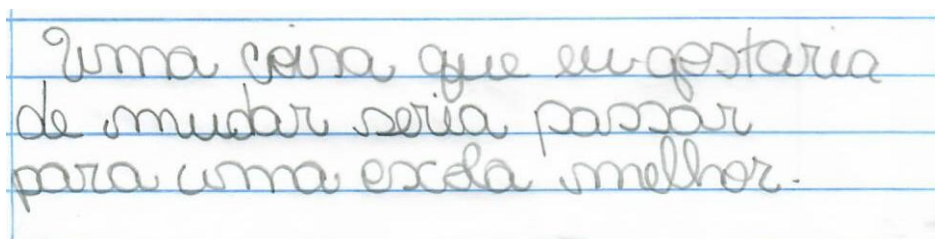 Uma coisa que eu gostaria
de mudar seria passar
para uma escola melhor.